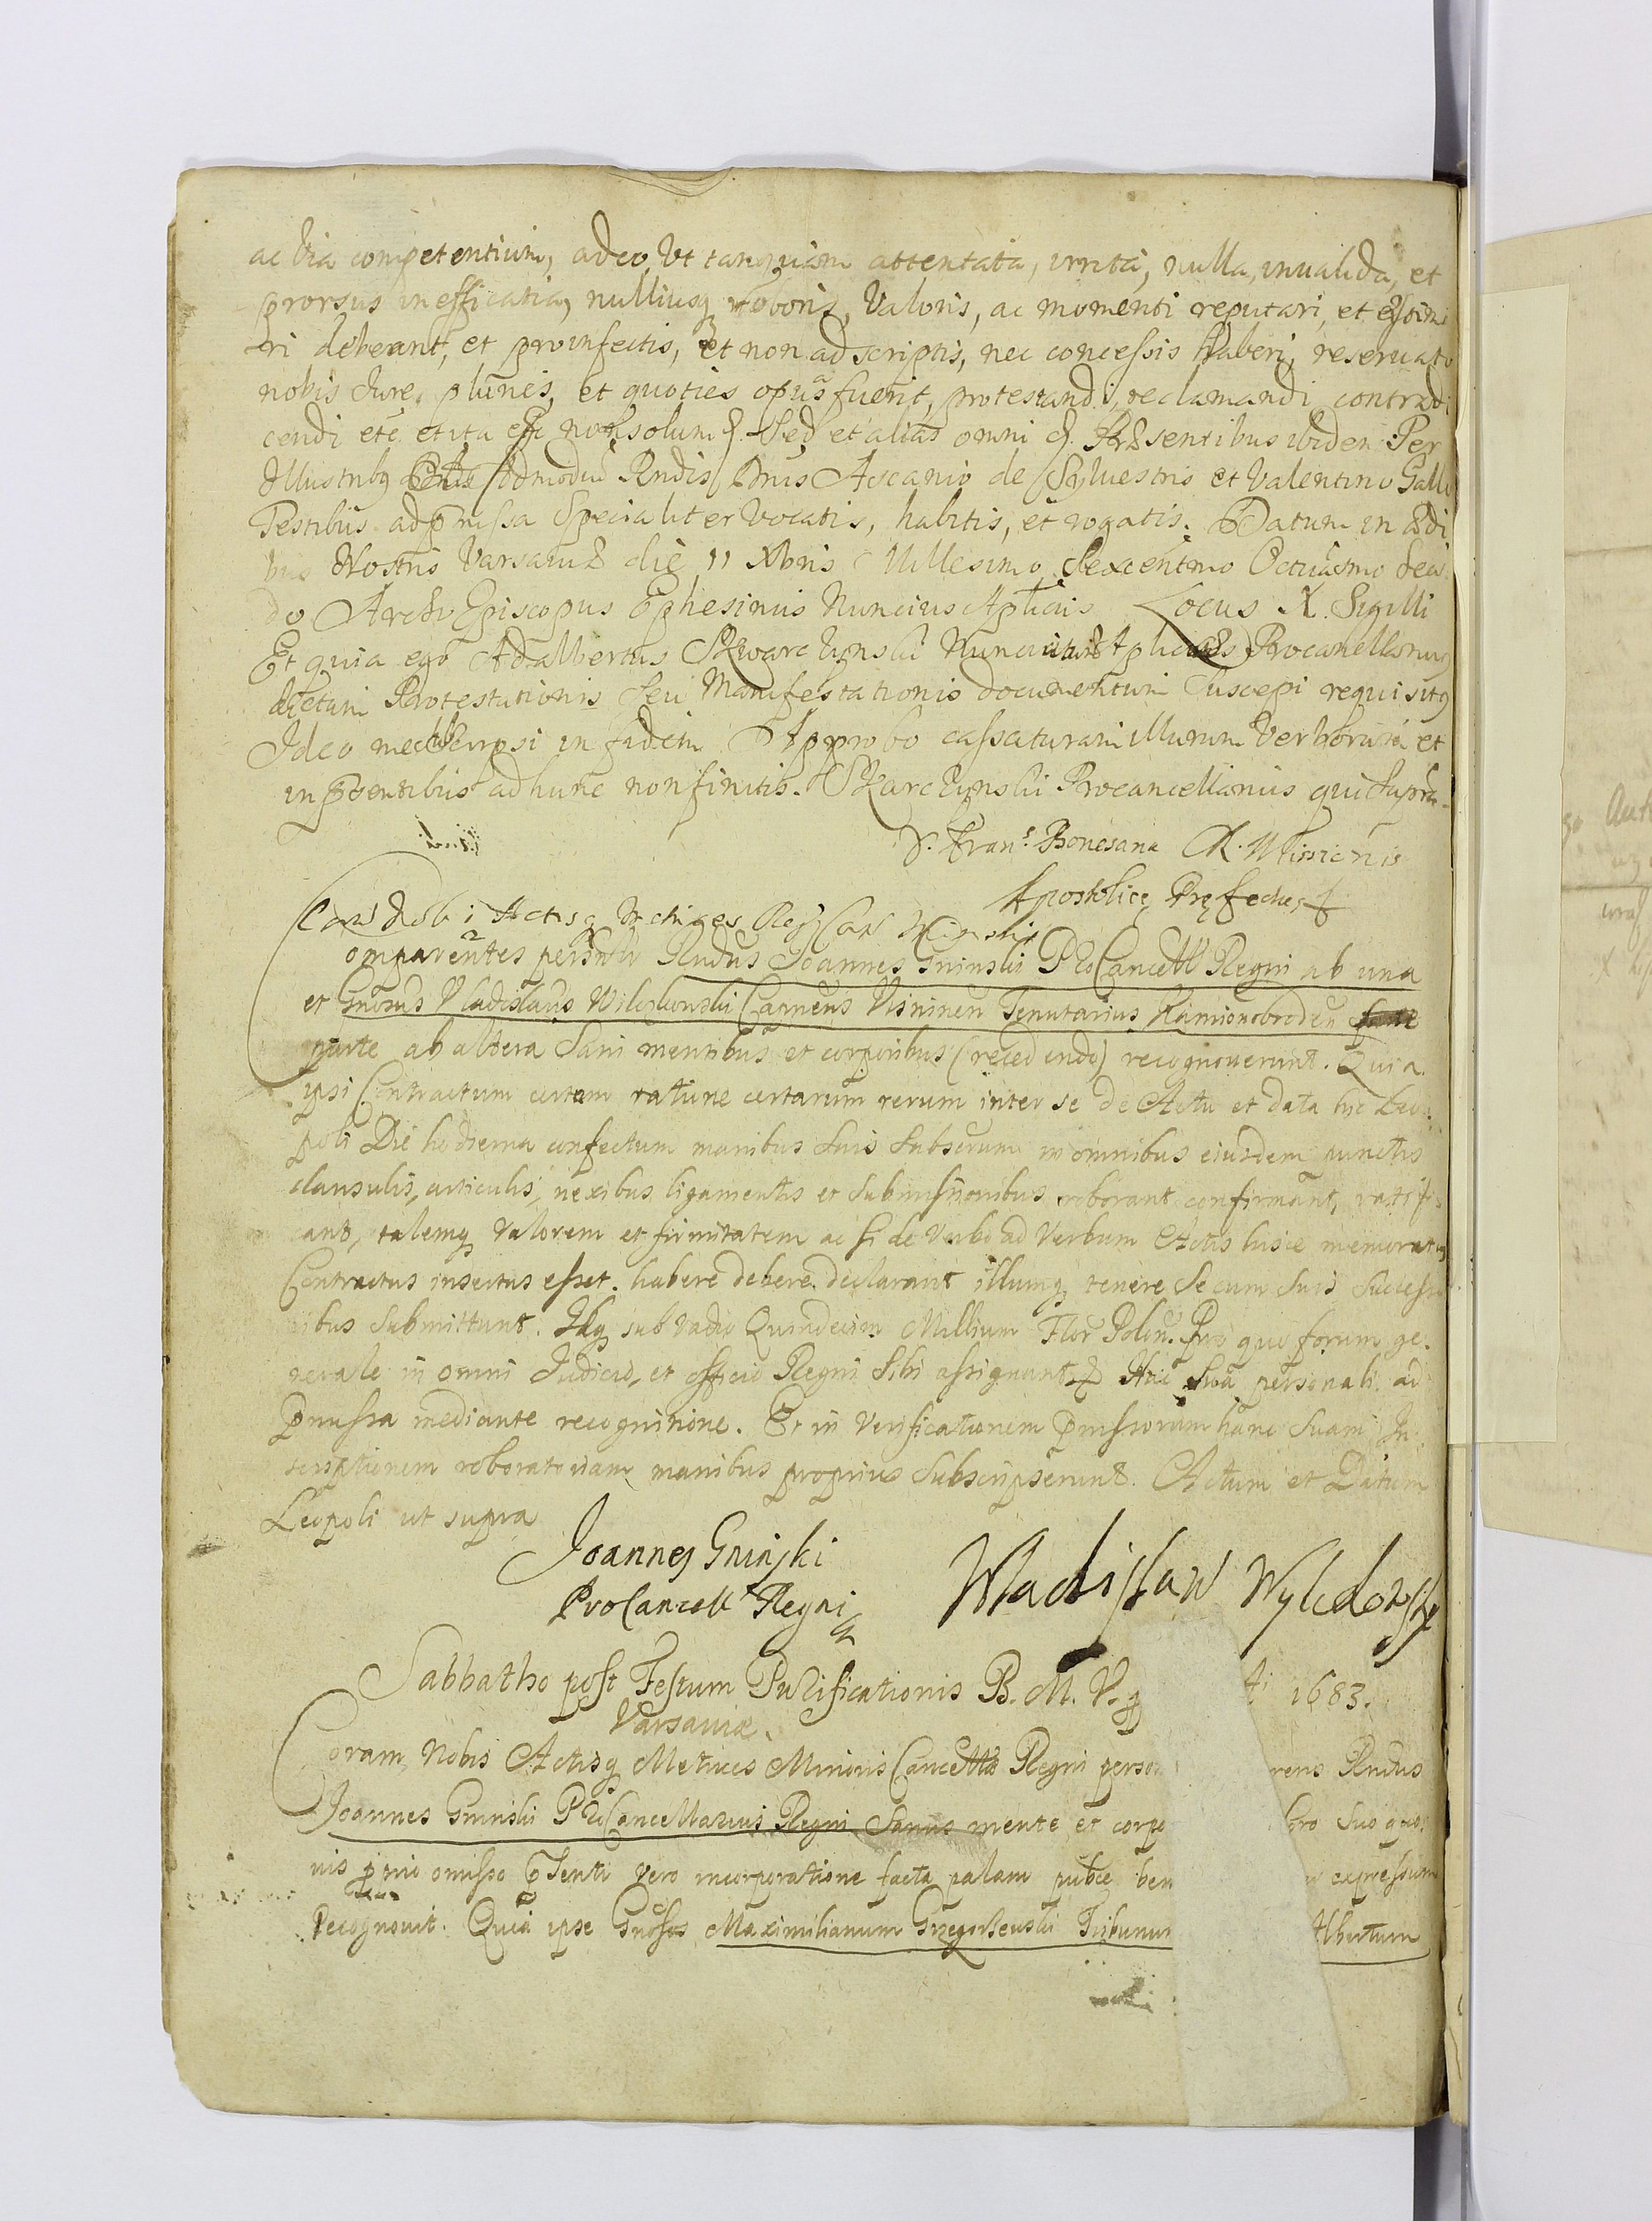 ac via competentium, adeo, ut tanquam attentata, irrita, nulla, inualida, et
prorsus inefficatia, nulliusq roboris, Valoris, ac momenti reputari, et estima
ri debeant, et pro infectis, et non adscriptis, nec concessis haberi, reseruato
nobis Jure, pluries, et quoties opus fuerit, protestandi, reclamandi contradi
cendi etc. et ita non solum Sed et alias omni Praesentibus ibidem Per
Illustribq Admodu Rndis Dnis Ascanio de Syluestris et Valentino Galli
Testibus ad pmissa Specialiter Vocatis, habitis, et rogatis. Datum in Aedi
bus Nostris Varsauiae die 11 Xbris Millesimo Sexcentmo Octuasmo Secu
do Archi Episcopus Ephesinus Nuncius Aplicus Locus X. Sigilli
Et quia ego Adalbertus Skwarczynski Procancellarius
dictum Protestationis Seu Manifestationis documentum Suscepi requisitq
Ideo me subscripsi in fidem. Approbo cassaturam illorum Verborum et
in pntentibus adhunc non finitis. Skarczynski Procancellarius qui supra.
D. Fran.s Bonesana
Apostolice Pręfectus
Actisq Metrices
omparentes personlr Rndus Joannes Gninski ProCancell Regni ab una
et Gnosus Vladislaus Wilczkowski Capneus Visninen Tenutarius Kamionobroden
parte ab altera Sani mentibus et corporibus (recedendo) recognouerunt. Quia
ipsi Contractum certum ratione certarum rerum inter se de Actu et data hic Leo
poli Die hodierna confectum manibus Suis Subscriptum in omnibus eiusdem punctis
clausulis, articulis, nexibus ligamentis et Submissionibus roborant confirmant, ratifi
cant, talemq valorem et firmitatem ac si de Verbo ad Verbum Actis hisce memoratq
Contractus insertus esset. habere debere declarant illumq tenere Se cum Suis Successo
ribus Submittunt. Idq sub vadio Quindecim Millium Flor Polon. Pro quo forum ge
nerale in omni Judicio, et officio Regni Sibi assignant. Hac Sua personali ad
pmissa mediante recognitione. Et in Verificationem pmissorum hanc Suam In
scriptionem roboratoriam manibus proprius Subscripserunt. Actum et Datum
Leopoli ut supra
Joannes Gninski
ProCancell Regni
Wladislaw
Sabbatho post Festum Purificationis B. M. V. 1683.
Varsauiæ.
Coram Nobis Actisq Metrices Minoris Cancellæ Regni person rens Rndus
Joannes Gninski ProCancellarius Regni Sanus mente et corpo ro Suo quo
uis prio omisso pntenti vero incorporatione facta palam publce ben expressum
Recognouit. Quia ipse Gnosos Maximilianum Grzegorzewski Tribunum Albertum